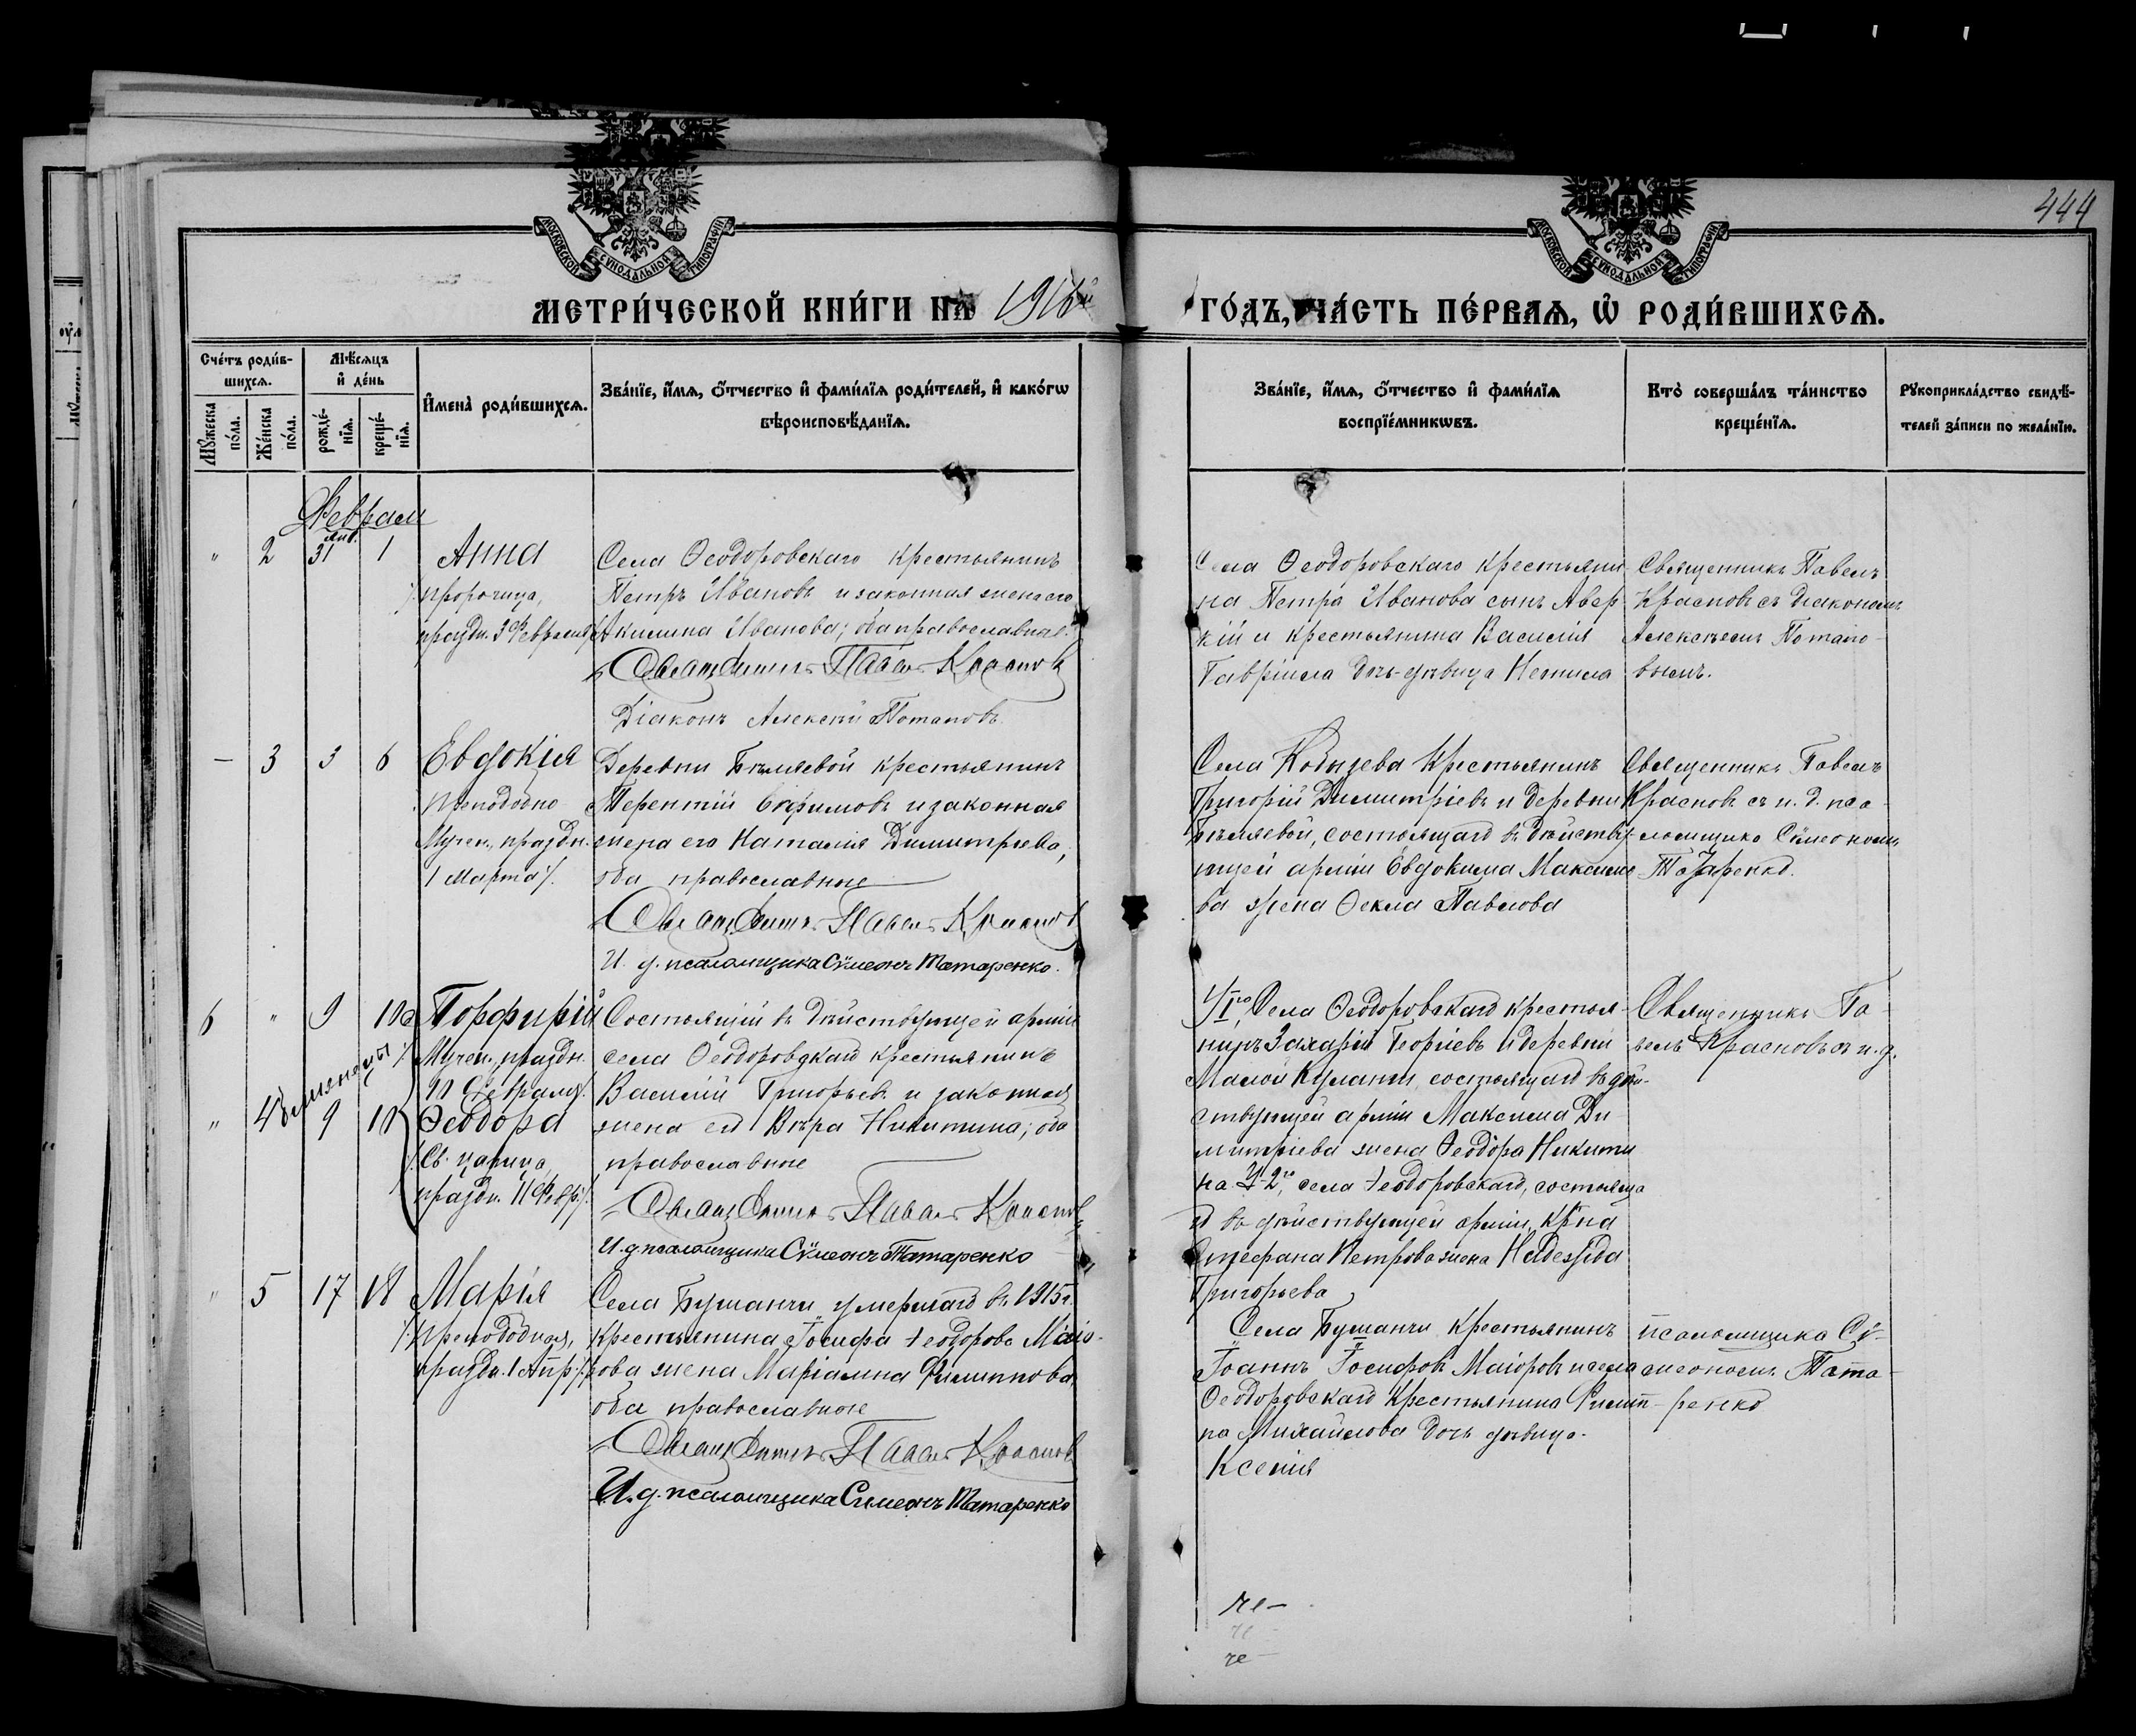 444
МОСКОВСКОЙ СѴНОДАЛЬНОЙ ТИПОГРАФІИ
МОСКОВСКОЙ СѴНОДАЛЬНОЙ ТИПОГРАФІИ
МЕТРИ́ЧЕСКОЙ КНИ́ГИ НА 1916й ГО́ДЪ, ЧА́СТЬ ПЕ́РВАѦ, Ѡ҆ РОДИ́ВШИХСѦ.
Сче́тъ роди́в-
шихсѧ.
Мꙋ́жеска по́ла.
Же́нска по́ла.
Мѣ́сѧцъ
и҆ де́нь
рожде́-
нїѧ.
креще́-
нїѧ.
И҆мена̀ роди́вшихсѧ.
Зва́нїе, и҆́мѧ, ѻ҆́тчество и҆ фами́лїѧ роди́телей, и҆ како́гѡ
вѣроисповѣ́данїѧ.
Зва́нїе, и҆́мѧ, ѻ҆́тчество и҆ фами́лїѧ
воспрїе́мникѡвъ.
Кто̀ соверша́лъ та́инство
креще́нїѧ.
Рꙋкоприкла́дство свидѣ́-
телей за́писи по жела́нїю.
Февраля
„ 2 Янв. 31 1 Анна
/пророчица,
праздн. 3 Февраля/
Села Ѳеодоровскаго крестьянинъ
Петръ Ивановъ и законная жена его
Акилина Иванова; оба православные.
Священникъ Павелъ Красновъ
Діаконъ Алексѣй Потаповъ
Села Ѳеодоровскаго крестьяни-
на Петра Иванова сынъ Авер-
кій и крестьянина Василія
Гавріила дочь-дѣвица Неонила
Священникъ Павелъ
Красновъ съ діакономъ
Алексѣемъ Потапо-
вымъ.
— 3 3 6 Евдокія
Преподобно
Мучен., праздн.
1 Марта/.
Деревни Бѣляевой крестьянинъ
Терентій Евфимовъ и законная
жена его Наталія Димитріева,
оба православные
Священникъ Павелъ Красновъ
И. д. псаломщика Сѵмеонъ Татаренко.
Села Кобызева крестьянинъ
Григорій Димитріевъ и деревни
Бѣляевой, состоящаго въ дѣйству-
ющей арміи Евдокима Максимо-
ва жена Ѳекла Павлова
Священникъ Павелъ
Красновъ съ и. д. пса-
ломщика Сѵмеономъ
Татаренко.
6 „ 9 10 Порфирій
/Мучен., праздн.
Февраля/.
близнецы
„ 4 9 10 Ѳеодора
/Св. царица,
праздн. 11 Февр./.
Состоящій въ дѣйствующей арміи
села Ѳеодоровскаго крестьянинъ
Василій Григорьевъ и законная
жена его Вѣра Никитина; оба
православные
Священникъ Павелъ Красновъ
И. д. псаломщика Сѵмеонъ Татаренко
Села Ѳеодоровскаго крестья-
нинъ Захарій Георгіевъ и деревни
Малой состоящаго въ дѣй-
ствующей арміи Максима Ди-
митріева жена Ѳеодора Никити-
на. У 2го, села Ѳеодоровскаго, состояща-
го въ дѣйствующей арміи, кр-на
Стефана Петрова жена Надежда
Григорьева
Священникъ Па-
велъ Красновъ съ и. д.
„ 5 17 18 Марія
/Преподобная,
праздн. 1 Апр./.
Села Бушанчи, умершаго въ 1915 г.
крестьянина Іосифа Ѳеодорова Маіо-
рова жена Маріамна Филиппова,
оба православные
Священникъ Павелъ Красновъ
И. д. псаломщика Симеонъ Татаренко
Села Бушанчи крестьянинъ
Іоаннъ Іосифовъ Маіоровъ и села
Ѳеодоровскаго крестьянина Филип-
па Михайлова дочь дѣвица
Ксенія
псаломщика Сѵ-
меономъ Тата-
ренко
че-
че-
че-